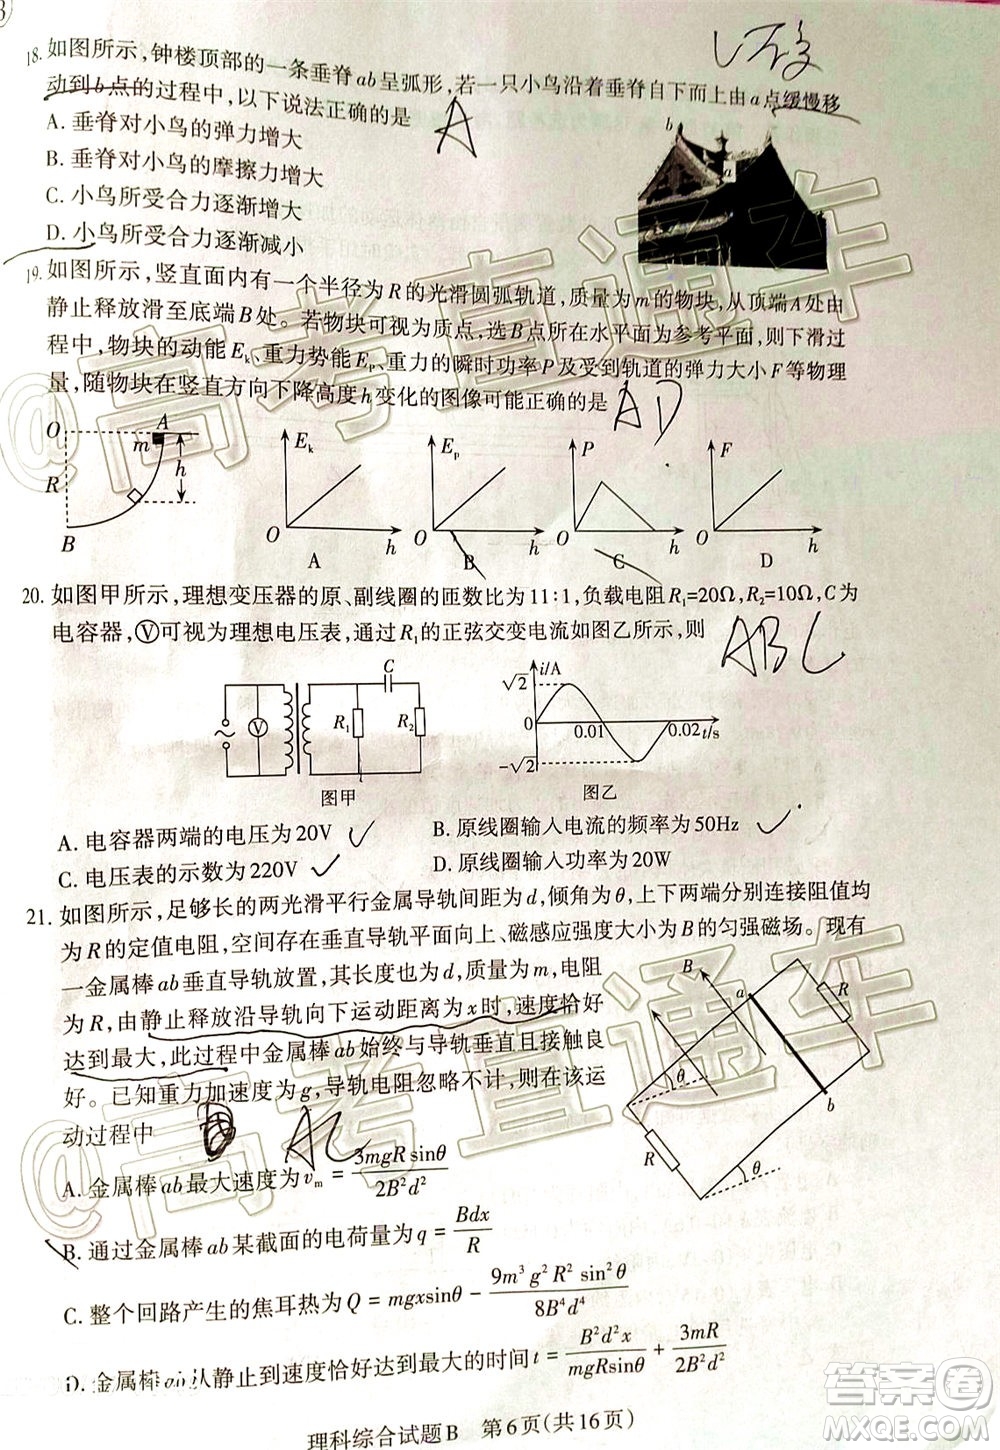 3
18. 如图所示,钟楼顶部的一条垂脊ab呈弧形,若一只小鸟沿着垂脊自下而上由a点缓慢移
动到b点的过程中,以下说法正确的是 A
A. 垂脊对小鸟的弹力增大
B. 垂脊对小鸟的摩擦力增大
C. 小鸟所受合力逐渐增大
D. 小鸟所受合力逐渐减小
b
a
19. 如图所示,竖直面内有一个半径为R的光滑圆弧轨道,质量为m的物块,从顶端A处由
静止释放滑至底端B处。若物块可视为质点,选B点所在水平面为参考平面,则下滑过
程中,物块的动能Eₖ、重力势能Eₚ、重力的瞬时功率P及受到轨道的弹力大小F等物理
量,随物块在竖直方向下降高度h变化的图像可能正确的是 AD
O A m h R B
Eₖ O h A
Eₚ O h B
P O h C
F O h D
20. 如图甲所示,理想变压器的原、副线圈的匝数比为11:1,负载电阻R₁=20Ω,R₂=10Ω,C为
电容器,Ⓥ可视为理想电压表,通过R₁的正弦交变电流如图乙所示,则 ABC
~ V R₁ C R₂
图甲
i/A √2 0 -√2 0.01 0.02 t/s
图乙
A. 电容器两端的电压为20V
B. 原线圈输入电流的频率为50Hz
C. 电压表的示数为220V
D. 原线圈输入功率为20W
21. 如图所示,足够长的两光滑平行金属导轨间距为d,倾角为θ,上下两端分别连接阻值均
为R的定值电阻,空间存在垂直导轨平面向上、磁感应强度大小为B的匀强磁场。现有
一金属棒ab垂直导轨放置,其长度也为d,质量为m,电阻
为R,由静止释放沿导轨向下运动距离为x时,速度恰好
达到最大,此过程中金属棒ab始终与导轨垂直且接触良
好。已知重力加速度为g,导轨电阻忽略不计,则在该运
动过程中 AC
B a R θ b R θ
A. 金属棒ab最大速度为vₘ=3mgRsinθ/2B²d²
B. 通过金属棒ab某截面的电荷量为q=Bdx/R
C. 整个回路产生的焦耳热为Q=mgxsinθ-9m³g²R²sin²θ/8B⁴d⁴
D. 金属棒ab从静止到速度恰好达到最大的时间t=B²d²x/mgRsinθ+3mR/2B²d²
理科综合试题B 第6页(共16页)
@高考直通车
@高考直通车
答案圈
MXQE.COM